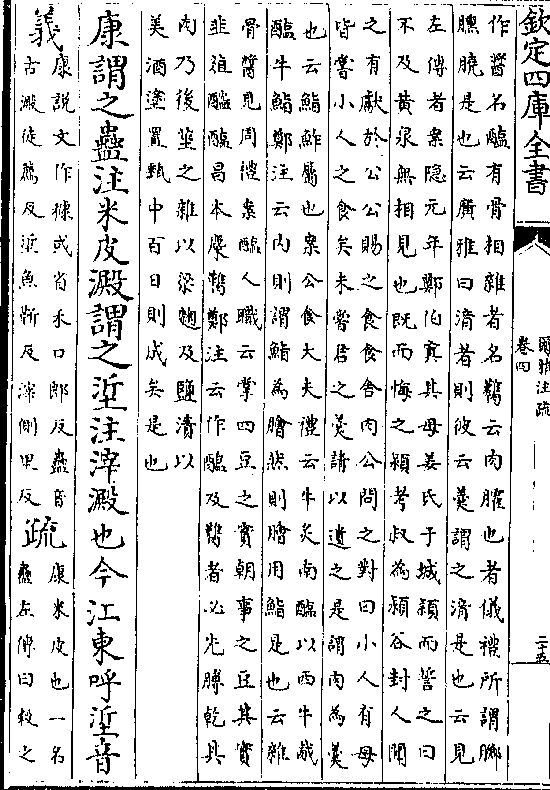 欽定四庫全書
爾雅注疏
卷四
二十五
作醬名醢有骨相雜者名臡云肉臛也者儀禮所謂膷
臐膮是也云廣雅曰湆者則彼云羹謂之湆是也云見
左傳者案隱元年鄭伯寘其母姜氏于城潁而誓之曰
不及黄泉無相見也既而悔之潁考叔為潁谷封人聞
之有獻於公公賜之食食舍肉公問之對曰小人有母
皆嘗小人之食矣未嘗君之羹請以遺之是謂肉為羹
也云鮨鮓屬也案公食大夫禮云牛炙南醢以西牛胾
醢牛鮨鄭注云内則謂鮨為膾然則膾用鮨是也云雜
骨醬見周禮案醢人職云掌四豆之實朝事之豆其實
韭菹醓醢昌本麋臡鄭注云作醢及臡者必先膊乾其
肉乃後莝之雜以粱麴及鹽漬以
美酒塗置甄中百日則成矣是也
康謂之蠱注米皮澱謂之垽注滓澱也今江東呼垽音
義
康說文作穅或省禾口郎反蠱音
古澱徒薦反垽魚靳反滓側里反
疏
康米皮也一名
蠱左傳曰穀之